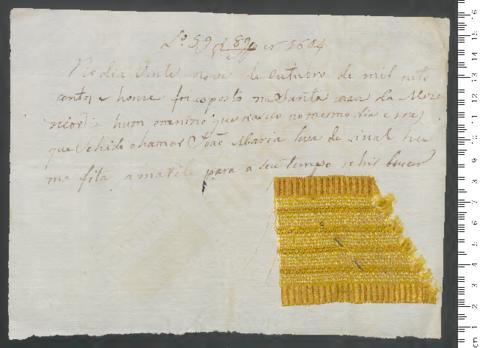 Lº 59 f 89 nº 1604
No dia vinte nove de outubro de mil oito
centos e honze foi exposto na Santa caza da Mize
ricordia hum menino que nasceu no mesmo dia e
que se hade chamar João Maria leva de sinal hu
ma fita amarela para a seu tempo se hir buscar